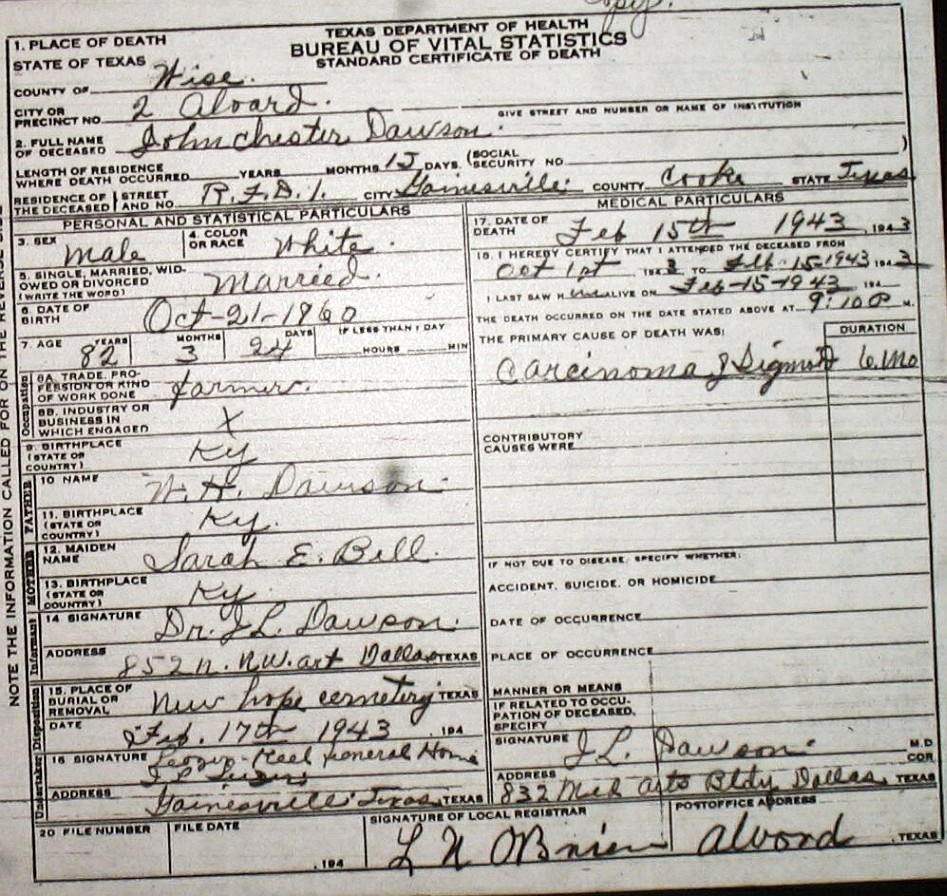 Copy.
TEXAS DEPARTMENT OF HEALTH
BUREAU OF VITAL STATISTICS
STANDARD CERTIFICATE OF DEATH
1. PLACE OF DEATH
STATE OF TEXAS
COUNTY OF Wise.
CITY OR PRECINCT NO. 2 Alvard.
GIVE STREET AND NUMBER OR NAME OF INSTITUTION
2. FULL NAME OF DECEASED John chester Dawson.
LENGTH OF RESIDENCE WHERE DEATH OCCURRED YEARS MONTHS 15 DAYS. (SOCIAL SECURITY NO. )
RESIDENCE OF THE DECEASED STREET AND NO. R.F.D.1. CITY Gainesville COUNTY Cooke STATE Texas
PERSONAL AND STATISTICAL PARTICULARS
3. SEX Male 4. COLOR OR RACE White.
5. SINGLE, MARRIED, WIDOWED OR DIVORCED (WRITE THE WORD) Married.
6. DATE OF BIRTH Oct-21-1860
7. AGE YEARS 82 MONTHS 3 DAYS 24 IF LESS THAN 1 DAY HOURS MIN
Occupation
8A. TRADE, PROFESSION OR KIND OF WORK DONE farmer.
8B. INDUSTRY OR BUSINESS IN WHICH ENGAGED X
9. BIRTHPLACE (STATE OR COUNTRY) Ky
FATHER
10 NAME W. H. Dawson.
11. BIRTHPLACE (STATE OR COUNTRY) Ky.
MOTHER
12. MAIDEN NAME Sarah E. Bell.
13. BIRTHPLACE (STATE OR COUNTRY) Ky.
Informant
14 SIGNATURE Dr. J L. Dawson.
ADDRESS Dallas TEXAS
Disposition
15. PLACE OF BURIAL OR REMOVAL New hope cemetery TEXAS
DATE Feb. 17th 1943 , 194
Undertaker
16 SIGNATURE Funeral Home
ADDRESS Gainesville Texas, TEXAS
20 FILE NUMBER FILE DATE , 194
MEDICAL PARTICULARS
17. DATE OF DEATH Feb 15th 1943, 1943
18. I HEREBY CERTIFY THAT I ATTENDED THE DECEASED FROM
Oct 1st 194 TO Feb-15-1943 1943
I LAST SAW Him ALIVE ON Feb-15-1943 194
THE DEATH OCCURRED ON THE DATE STATED ABOVE AT 9:10 P M.
THE PRIMARY CAUSE OF DEATH WAS: DURATION
Carcinoma of Sigmoid 6 Mo
CONTRIBUTORY CAUSES WERE
IF NOT DUE TO DISEASE, SPECIFY WHETHER:
ACCIDENT, SUICIDE, OR HOMICIDE
DATE OF OCCURRENCE
PLACE OF OCCURRENCE
MANNER OR MEANS
IF RELATED TO OCCUPATION OF DECEASED, SPECIFY
SIGNATURE J L. Dawson. M.D COR
ADDRESS 832 Med Arts Bldg Dallas, TEXAS
SIGNATURE OF LOCAL REGISTRAR L N OBrien
POSTOFFICE ADDRESS Alvord, TEXAS
NOTE THE INFORMATION CALLED FOR ON THE REVERSE